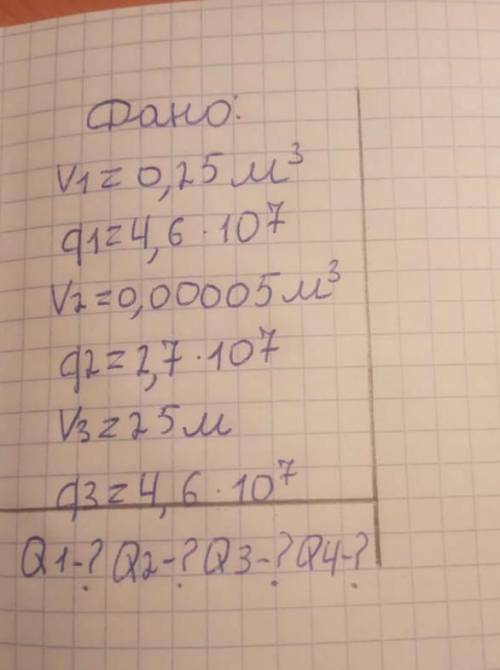 Дано:
V1=0,25 м³
q1=4,6·10⁷
V2=0,00005м³
q2=2,7·10⁷
V3=25м
q3=4,6·10⁷
Q1-? Q2-? Q3-? Q4-?